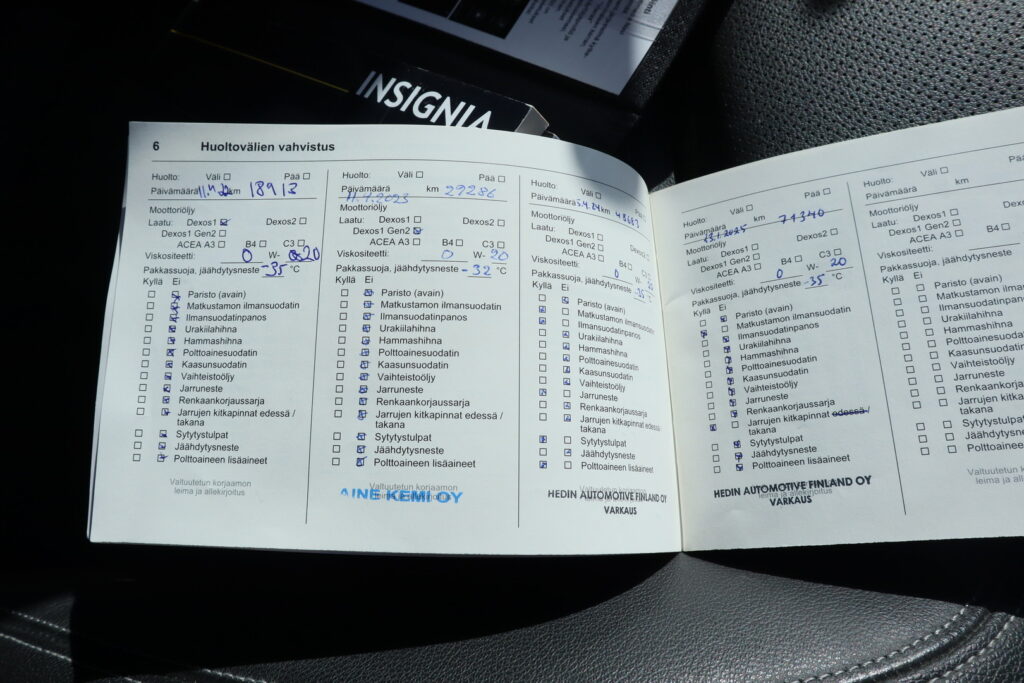 INSIGNIA
6 Huoltovälien vahvistus
Huolto: Väli ☐ Pää ☐
Päivämäärä km 18913
Moottoriöljy
Laatu: Dexos1 ☑ Dexos2 ☐
Dexos1 Gen2 ☐
ACEA A3 ☐ B4 ☐ C3 ☐
Viskositeetti: 0 W- 20
Pakkassuoja, jäähdytysneste -35 °C
Kyllä Ei
Paristo (avain)
Matkustamon ilmansuodatin
Ilmansuodatinpanos
Urakiilahihna
Hammashihna
Polttoainesuodatin
Kaasunsuodatin
Vaihteistoöljy
Jarruneste
Renkaankorjaussarja
Jarrujen kitkapinnat edessä /
takana
Sytytystulpat
Jäähdytysneste
Polttoaineen lisäaineet
Valtuutetun korjaamon
leima ja allekirjoitus
Huolto: Väli ☐ Pää ☐
Päivämäärä km 29286
11.7.2023
Moottoriöljy
Laatu: Dexos1 ☐ Dexos2 ☐
Dexos1 Gen2 ☑
ACEA A3 ☐ B4 ☐ C3 ☐
Viskositeetti: 0 W- 20
Pakkassuoja, jäähdytysneste -32 °C
Kyllä Ei
Paristo (avain)
Matkustamon ilmansuodatin
Ilmansuodatinpanos
Urakiilahihna
Hammashihna
Polttoainesuodatin
Kaasunsuodatin
Vaihteistoöljy
Jarruneste
Renkaankorjaussarja
Jarrujen kitkapinnat edessä /
takana
Sytytystulpat
Jäähdytysneste
Polttoaineen lisäaineet
Valtuutetun korjaamon
AINE KEMI OY
Huolto: Väli ☐ Pää ☐
Päivämäärä km
Moottoriöljy
Laatu: Dexos1 ☐ Dexos2
Dexos1 Gen2 ☐
ACEA A3 ☐ B4 ☐ C3 ☐
Viskositeetti: 0 W- 20
Pakkassuoja, jäähdytysneste -35 °C
Kyllä Ei
Paristo (avain)
Matkustamon ilmansuodatin
Ilmansuodatinpanos
Urakiilahihna
Hammashihna
Polttoainesuodatin
Kaasunsuodatin
Vaihteistoöljy
Jarruneste
Renkaankorjaussarja
Jarrujen kitkapinnat edessä /
takana
Sytytystulpat
Jäähdytysneste
Polttoaineen lisäaineet
HEDIN AUTOMOTIVE FINLAND OY
VARKAUS
Huolto: Väli ☐ Pää ☐
Päivämäärä km 71340
Moottoriöljy
Laatu: Dexos1 ☐ Dexos2 ☐
Dexos1 Gen2 ☐
ACEA A3 ☐ B4 ☐ C3 ☐
Viskositeetti: 0 W- 20
Pakkassuoja, jäähdytysneste -35 °C
Kyllä Ei
Paristo (avain)
Matkustamon ilmansuodatin
Ilmansuodatinpanos
Urakiilahihna
Hammashihna
Polttoainesuodatin
Kaasunsuodatin
Vaihteistoöljy
Jarruneste
Renkaankorjaussarja
Jarrujen kitkapinnat edessä /
takana
Sytytystulpat
Jäähdytysneste
Polttoaineen lisäaineet
HEDIN AUTOMOTIVE FINLAND OY
leima ja allekirjoitus
VARKAUS
Huolto: Väli ☐
Päivämäärä km
Moottoriöljy
Laatu: Dexos1 ☐
Dexos1 Gen2 ☐
ACEA A3 ☐
Viskositeetti:
Pakkassuoja, jäähdytysneste
Kyllä Ei
Paristo (avain)
Matkustamon
Ilmansuodatinpanos
Urakiilahihna
Hammashihna
Polttoainesuodatin
Kaasunsuodatin
Vaihteistoöljy
Jarruneste
Renkaankorjaussarja
Jarrujen kitkapinnat
takana
Sytytystulpat
Jäähdytysneste
Polttoaineen
Valtuutetun
leima ja